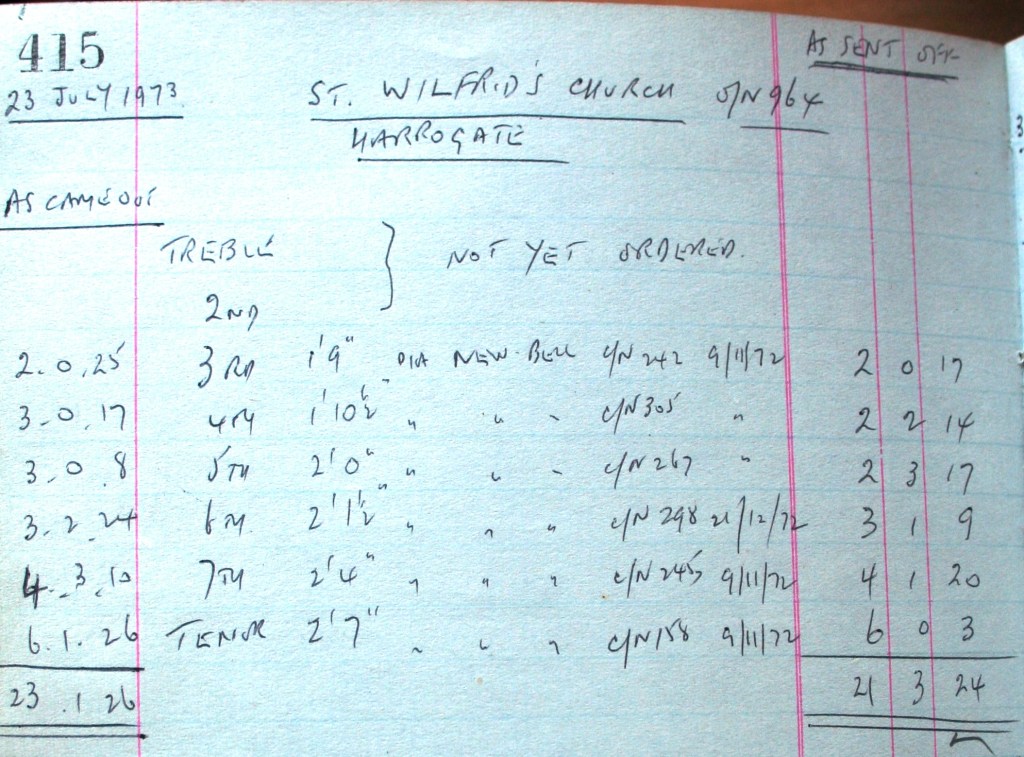 415 AS SENT OFF
23 JULY 1973 ST. WILFRID'S CHURCH O/N 964
HARROGATE
AS CAME OUT
TREBLE } NOT YET ORDERED.
2ND
2.0.25 3RD 1'9" DIA NEW BELL C/N 242 9/11/72 2 0 17
3.0.17 4TH 1'10½" " " " C/N 305 " 2 2 14
3.0.8 5TH 2'0" " " " C/N 267 " 2 3 17
3.2.24 6TH. 2'1½" " " " C/N 298 21/12/72 3 1 9
4.3.10 7TH 2'4" " " " C/N 245 9/11/72 4 1 20
6.1.26 TENOR 2'7" " " " C/N 158 9/11/72 6 0 3
23.1 26 21 3 24